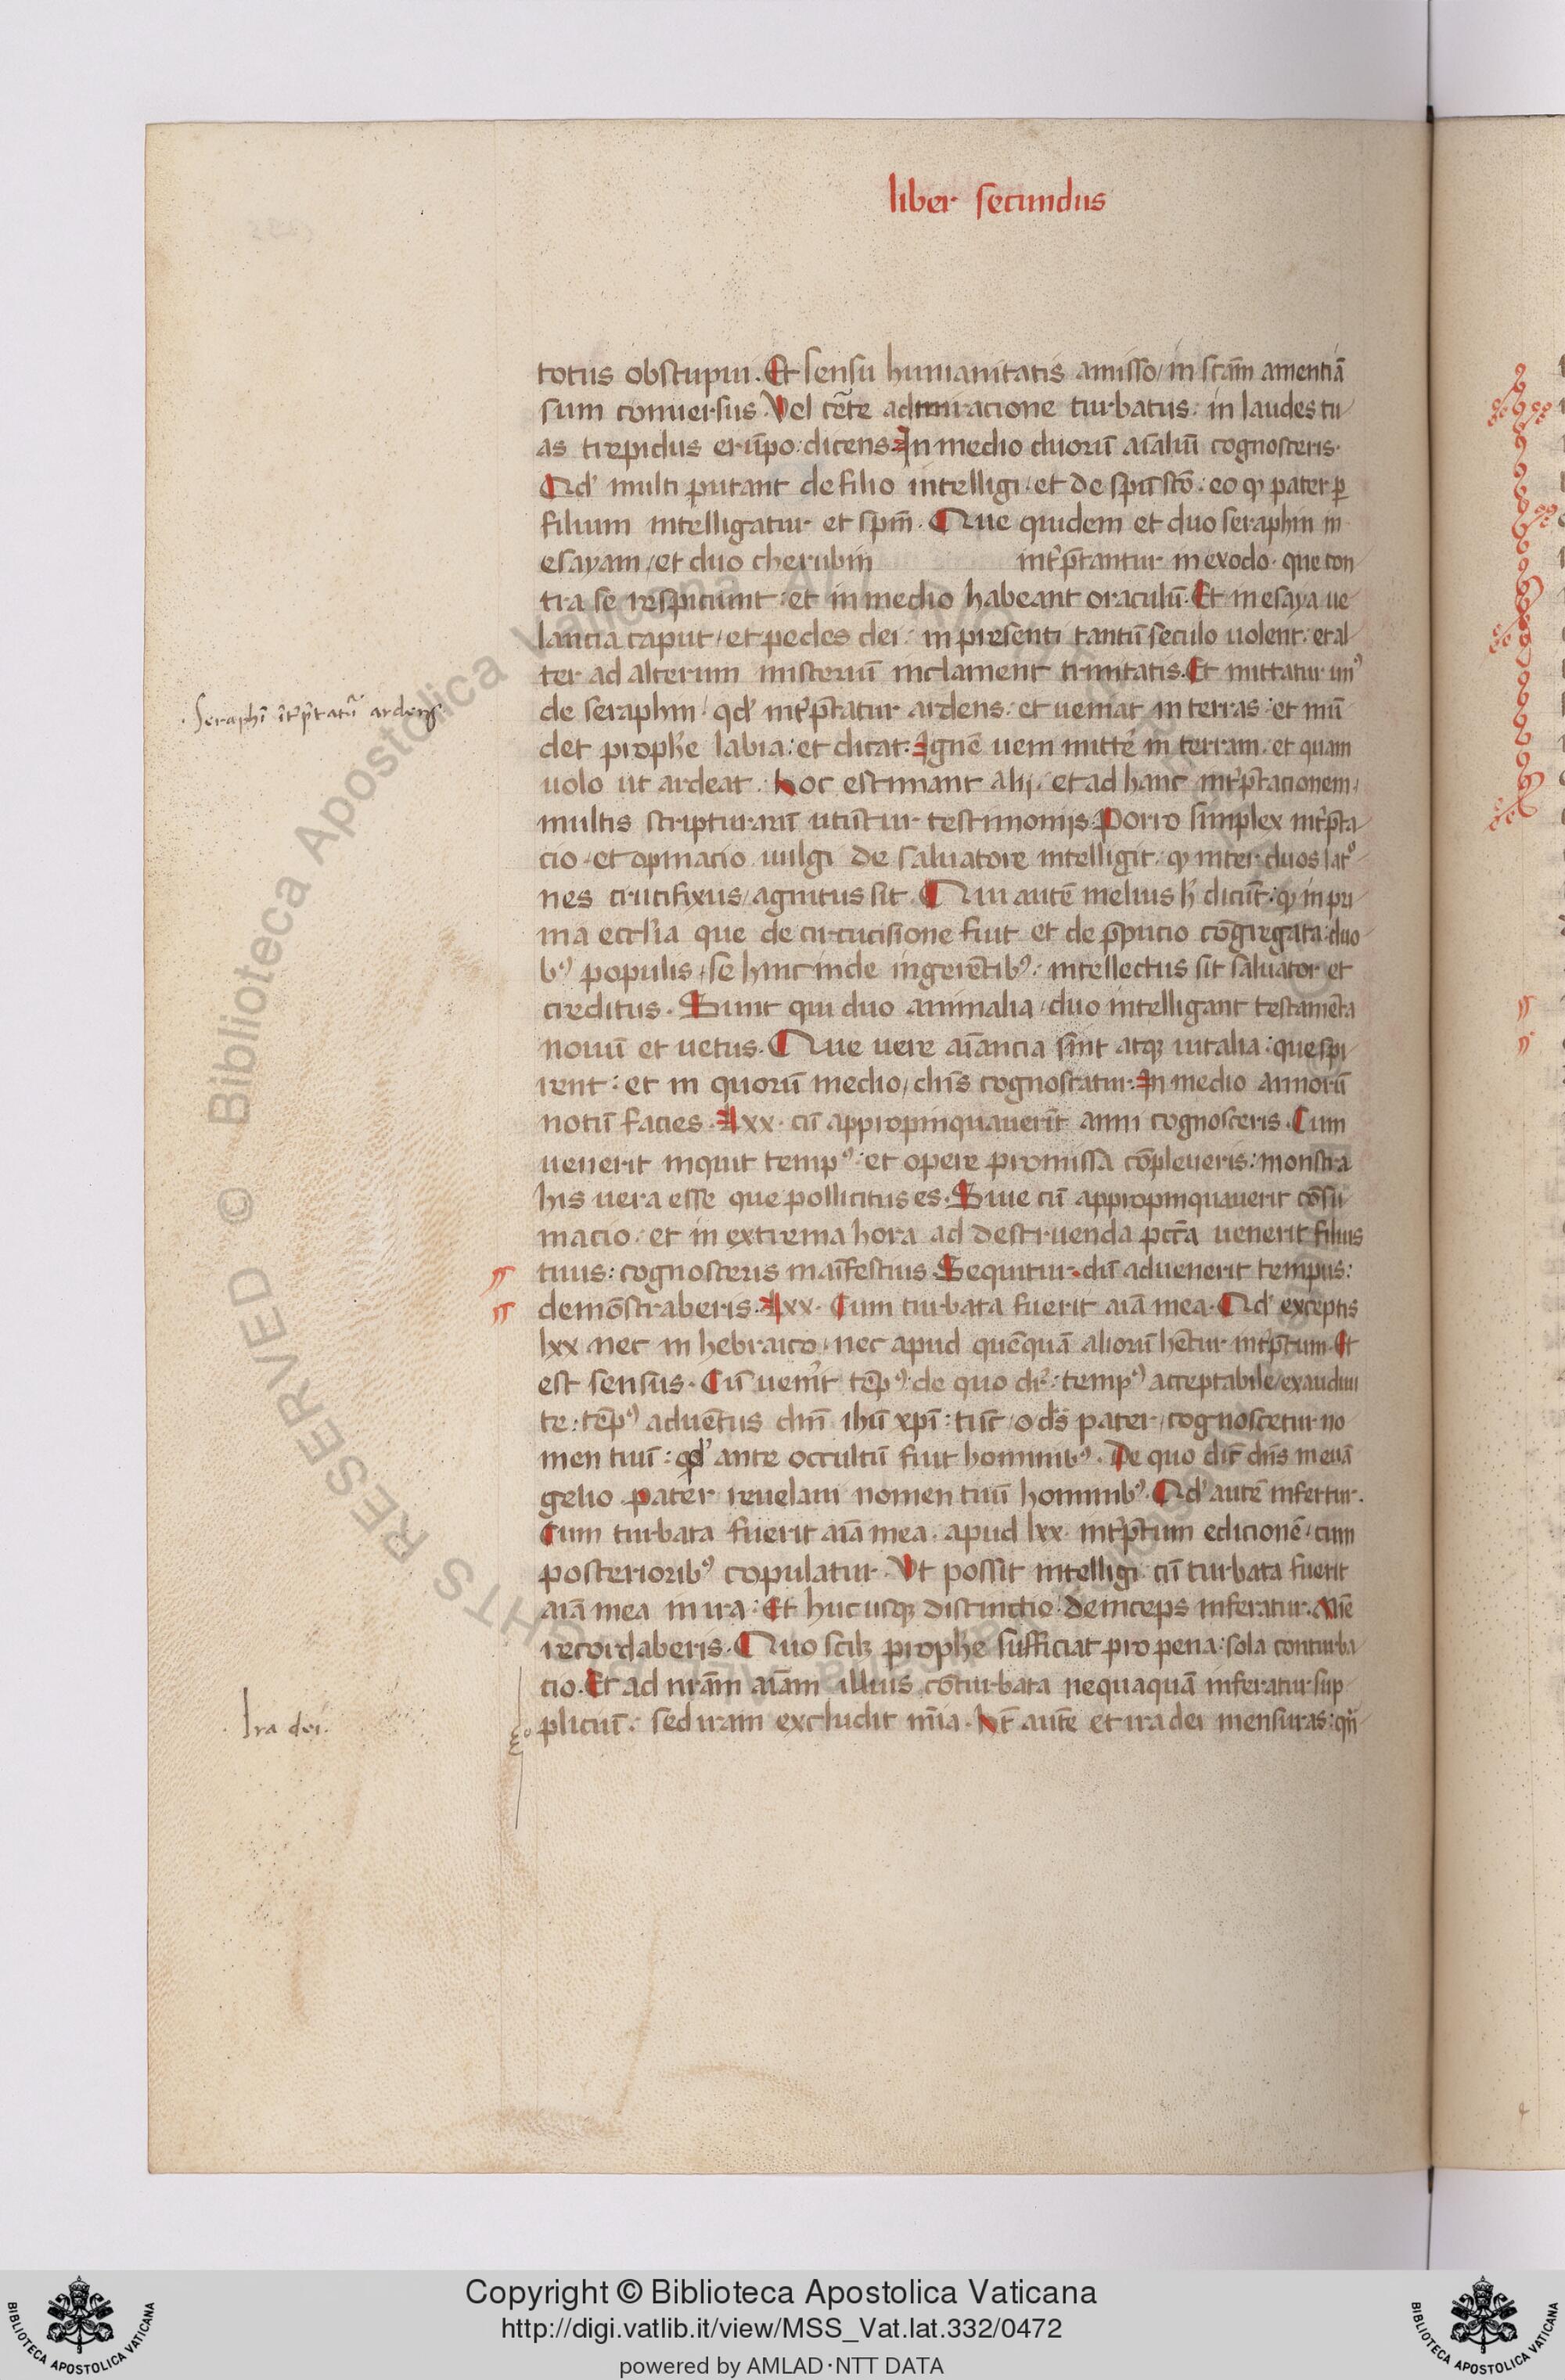 liber secundus
totus obstupui. Et sensu humanitatis amisso / in sc̄am amentiā
sum conuersus. Vel c̄te admiracione turbatus: in laudes tu-
as trepidus erūpo: dicens. In medio duorū aīaliū cognosceris.
Qd' multi putant de filio intelligi / et de spū sc̄o: eo ꝙ pater ꝑ
filium intelligatur et spm̄. Que quidem et duo seraphin in
esayam / et duo cherubin int'p̄tantur in exodo. que con
tra se respiciunt: et in medio habeant oraculū. Et in esaya ue
lancia caput / et pedes dei: in presenti tantū seculo uolent: et al
ter ad alterum misteriū inclament trinitatis. Et mittatur unꝰ
de seraphin / qd' int'p̄tatur ardens: et ueniat in terras: et mū
det prophe labia: et dicat. Ignē ueni mitte' in terram. et quam
uolo ut ardeat. Hoc estimant alij. et ad hanc int'p̄tacionem,
multis scripturarū utūtur testimonijs. Porro simplex int'p̄ta-
cio. et opinacio uulgi de saluatore intelligit: ꝙ inter duos lat°-
nes crucifixus / agnitus sit. Qui autē melius h' dicūt: ꝙ in pri-
ma ecclīa que de circucisione fuit et de p̄pucio cōgregata: duo-
bꝰ populis / se hinc inde ingerētibꝰ: intellectus sit saluator et
creditus. Sunt qui duo animalia / duo intelligant testamēta
nouū et uetus. Que uere aīancia sint atqꝫ uitalia: que spi
rent: et in quorū medio / dn̄s cognoscatur. In medio annorū
notū facies. lxx. cū appropinquauerīt anni cognosceris. Cum
uenerit inquit tempꝰ: et opere promissa cōpleueris: monstra
bis uera esse que pollicitus es. Siue cū appropinquauerit cōsū
macio: et in extrema hora ad destruenda pctā uenerit filius
tuus: cognosceris maīfestius. Sequitur. dū aduenerit tempus:
demōstraberis. lxx. Cum turbata fuerit aīa mea. Qd' exceptis
lxx. nec in hebraico / nec apud quēquā aliorū hētur int'p̄tum. Et
est sensus. Cū uen'it tēpꝰ: de quo dr̄: tempꝰ acceptabile / exaudiui
te: tēpꝰ aduētus dn̄i ihū xp̄i: tūc / o ds̄ pater / cognoscetur no
men tuū: qd' ante occultū fuit hominibꝰ. De quo dic̄ dn̄s in euā
gelio. pater reuelaui nomen tuū hominibꝰ. Qd' autē infertur.
Cum turbata fuerit aīa mea. apud lxx. int'p̄tum edicionē / cum
posterioribꝰ copulatur. Vt possit intelligi cū turbata fuerit
aīa mea in ira: Et hucusqꝫ distinctio. deinceps inferatur. Mīe
recordaberis. Quo scilꝫ prophe sufficiat pro pena: sola conturba
cio. Et ad nrām aīam illius cōturbata nequaquā inferatur sup
pliciū: sed iram excludit mīa. Ht̄ autē et ira dei mensuras: qn̄-
Seraphī īt'p̄tatū ardens
Ira dei.
Biblioteca Apostolica Vaticana
RIGHTS RESERVED ©
Copyright © Biblioteca Apostolica Vaticana
http://digi.vatlib.it/view/MSS_Vat.lat.332/0472
powered by AMLAD·NTT DATA
BIBLIOTECA APOSTOLICA VATICANA
BIBLIOTECA APOSTOLICA VATICANA